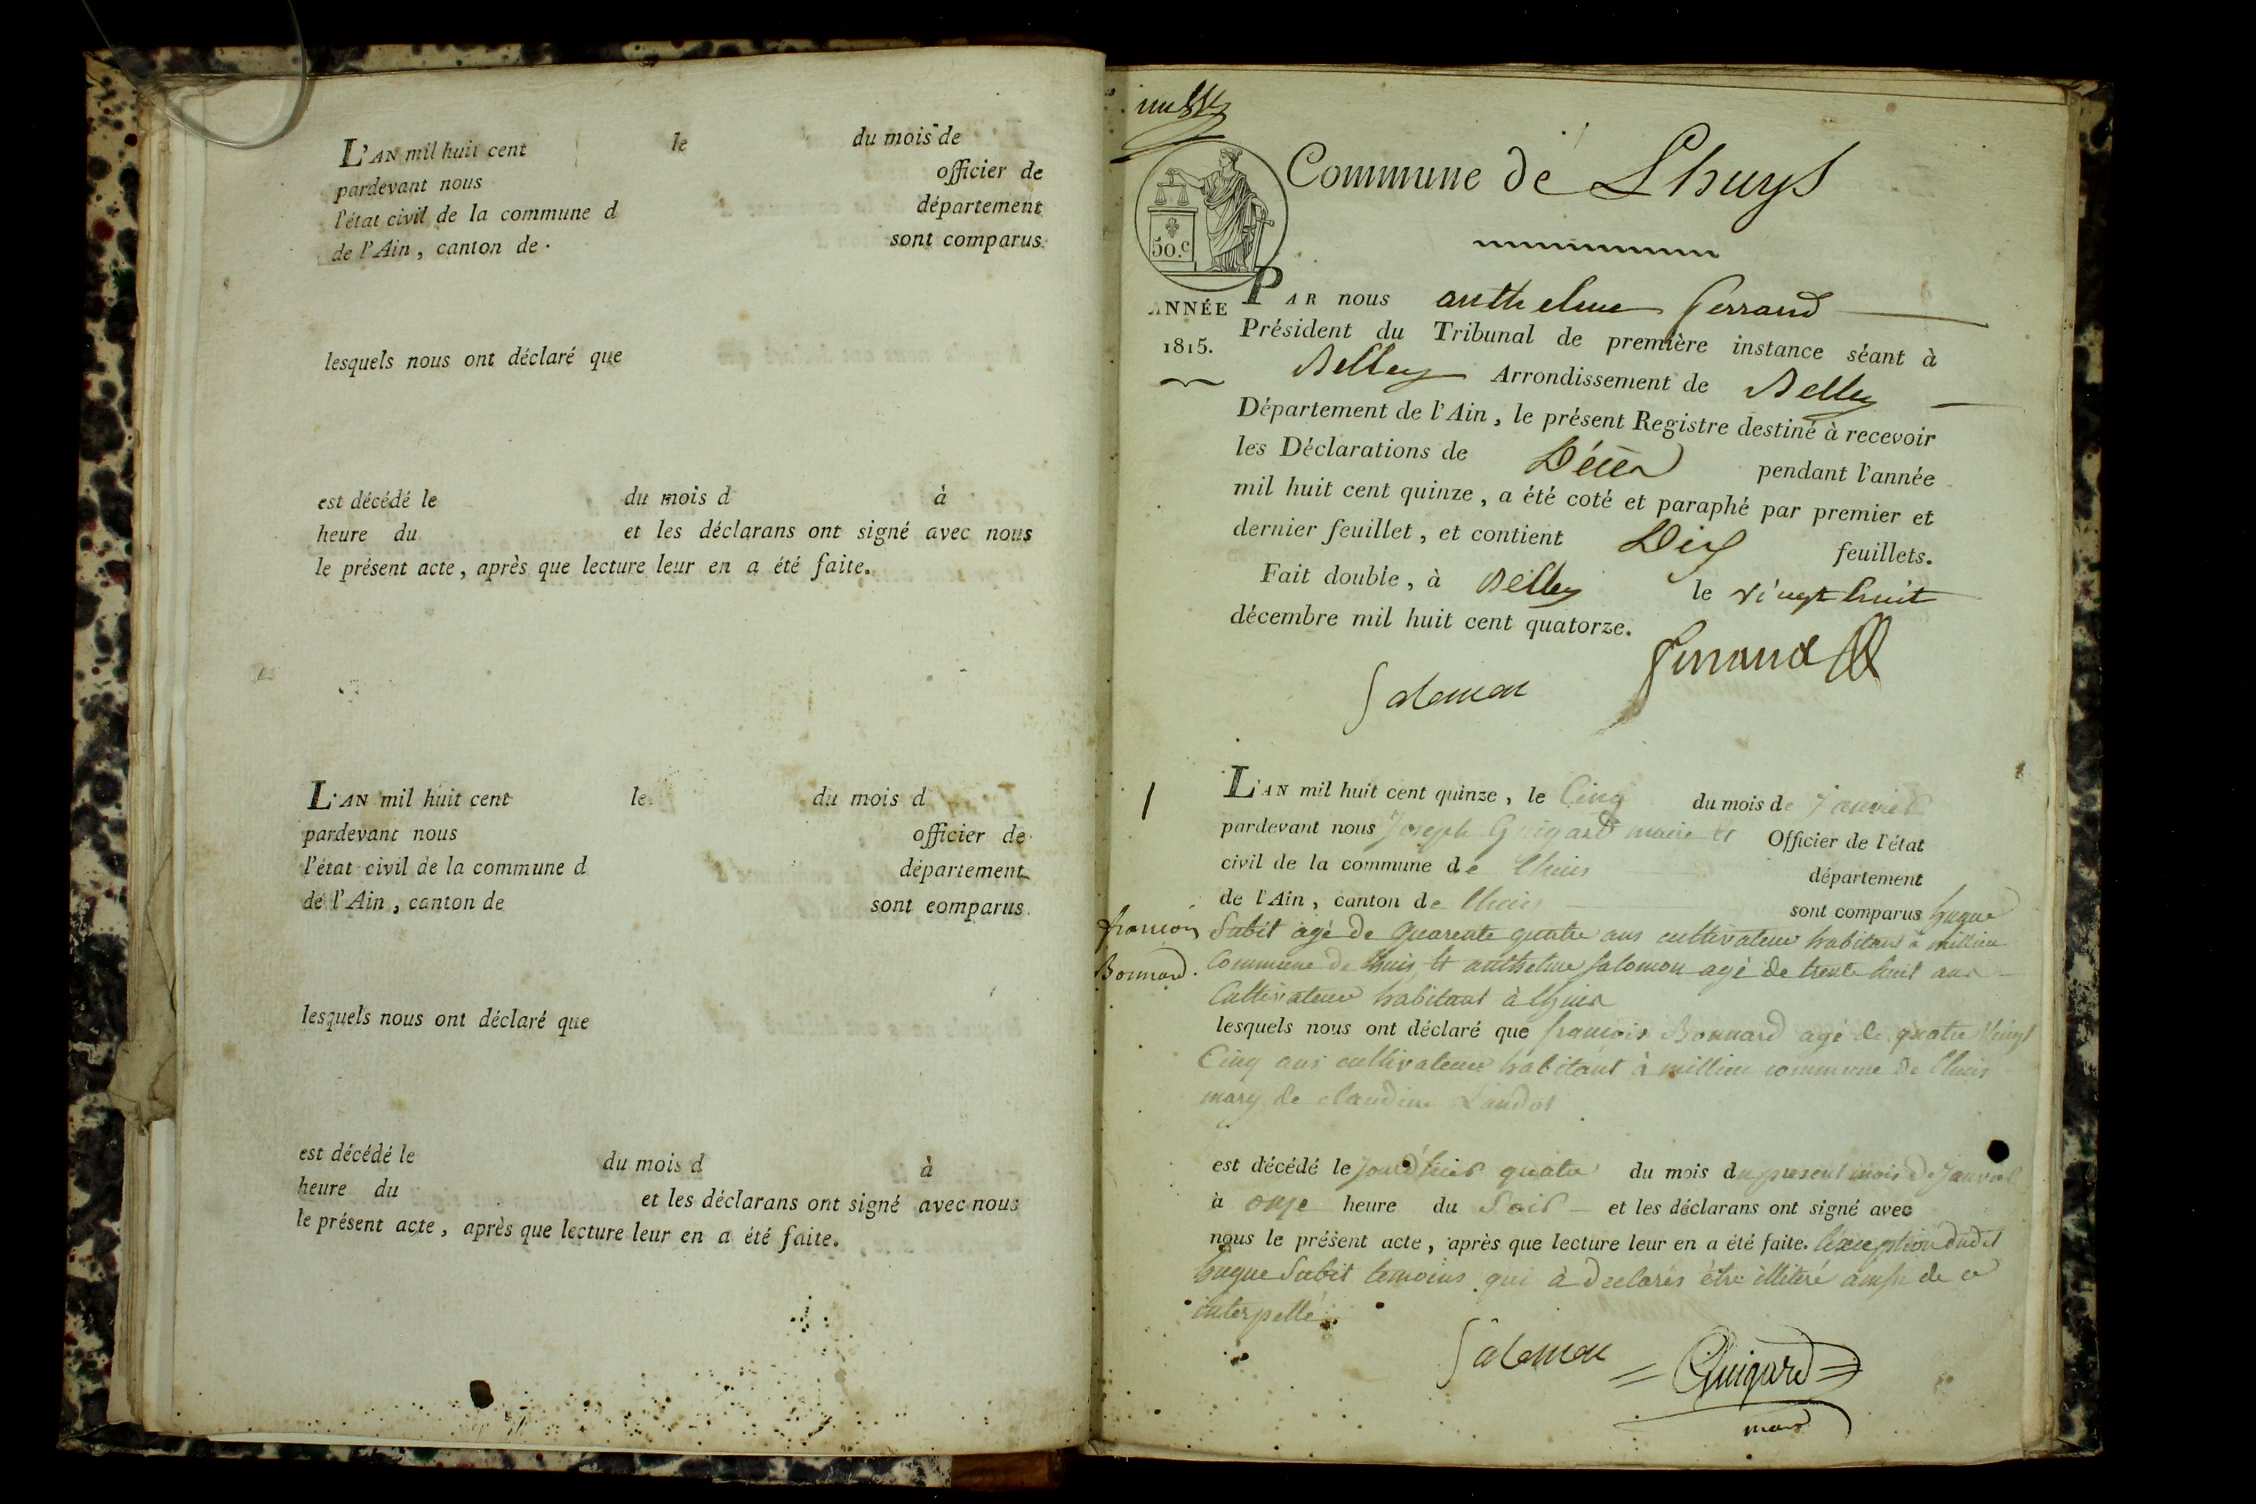 L'AN mil huit cent le du mois de
pardevant nous officier de
l'état civil de la commune d département
de l'Ain, canton de sont comparus
lesquels nous ont déclaré que
est décédé le du mois d à
heure du et les déclarans ont signé avec nous
le présent acte, après que lecture leur en a été faite.
L'AN mil huit cent le du mois d
pardevant nous officier de
l'état civil de la commune d département
de l'Ain, canton de sont comparus
lesquels nous ont déclaré que
est décédé le du mois d à
heure du et les déclarans ont signé avec nous
le présent acte, après que lecture leur en a été faite.
Commune de Lhuys
50.c
ANNÉE
1815.
PAR nous anthelme ferrand
Président du Tribunal de première instance séant à
Belley Arrondissement de Belley
Département de l'Ain, le présent Registre destiné à recevoir
les Déclarations de Décès pendant l'année
mil huit cent quinze, a été coté et paraphé par premier et
dernier feuillet, et contient Dix feuillets.
Fait double, à Belley le vingt huit
décembre mil huit cent quatorze.
ferrand
Salomon
1
L'AN mil huit cent quinze, le Cinq du mois de janvier
pardevant nous Joseph Guigard maire et Officier de l'état
civil de la commune de lhuis département
de l'Ain, canton de lhuis sont comparus hugue
françois
Bonnard.
Subit agé de quarente quatre ans cultivateur habitant à millieu
Commune de lhuis et anthelme Salomon agé de trente huit ans
Cultivateur habitant à lhuis
lesquels nous ont déclaré que françois Bonnard agé de quatre vingt
Cinq ans cultivateur habitant à millieu commune de lhuis
mary de claudine
est décédé le jourd'hier quatre du mois du present mois de janvier
à onze heure du Soir et les déclarans ont signé avec
nous le présent acte, après que lecture leur en a été faite. l'exception dudit
hugue Subit temoins qui à declarés être illiteré de ce
interpellé.
Salomon Guigard
maire